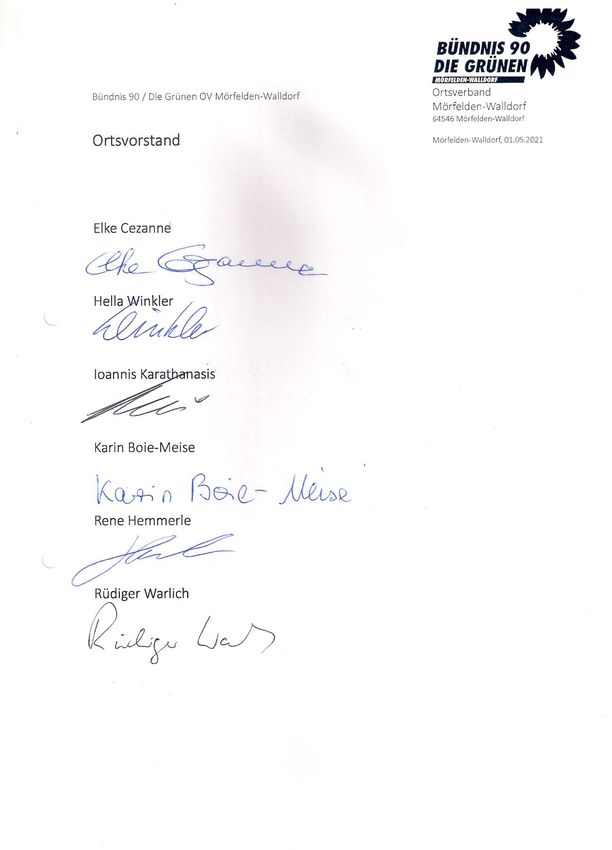 BÜNDNIS 90
DIE GRÜNEN
MÖRFELDEN-WALLDORF
Ortsverband
Mörfelden-Walldorf
64546 Mörfelden-Walldorf
Bündnis 90 / Die Grünen OV Mörfelden-Walldorf
Mörfelden-Walldorf, 01.05.2021
Ortsvorstand
Elke Cezanne
Elke Cezanne
Hella Winkler
Winkler
Ioannis Karathanasis
Karin Boie-Meise
Karin Boie-Meise
Rene Hemmerle
Rüdiger Warlich
Rüdiger